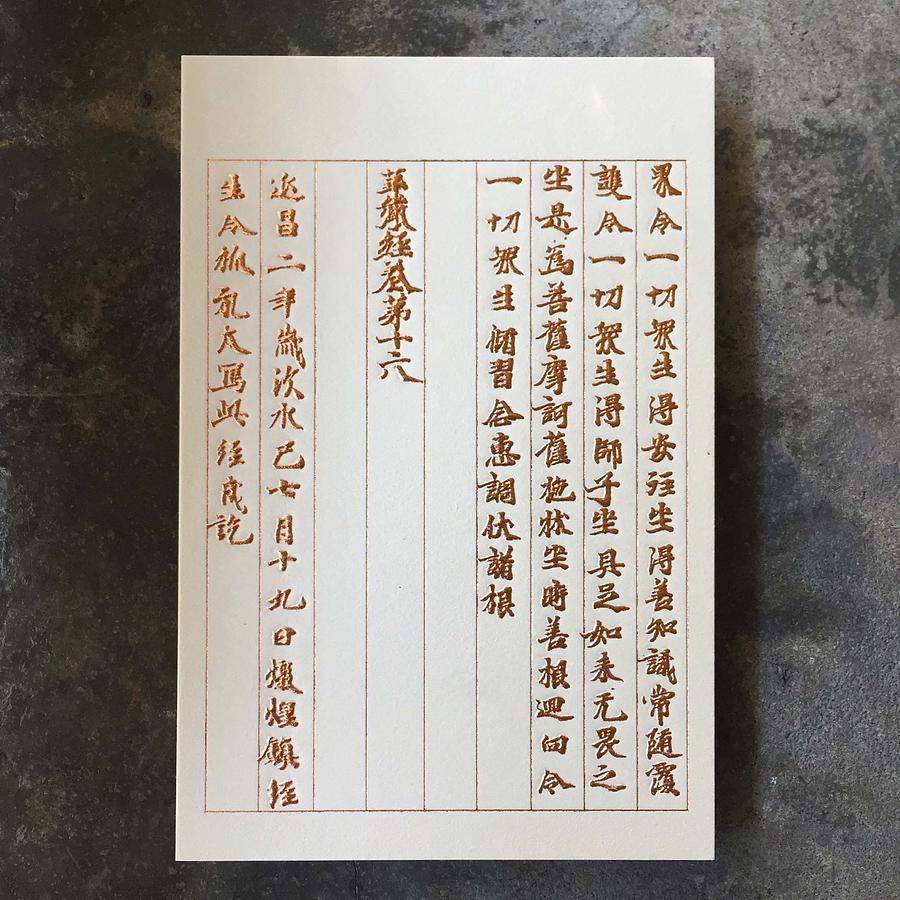 界令一切眾生得安住坐得善知識常隨覆
護令一切眾生得師子坐具足如来无畏之
坐是為菩薩摩訶薩施牀坐時善根迴向令
一切眾生脩習念惠調伏諸根
華嚴經卷第十六
延昌二年歲次水巳七月十九日燉煌鎮經
生令狐礼太寫此經成訖